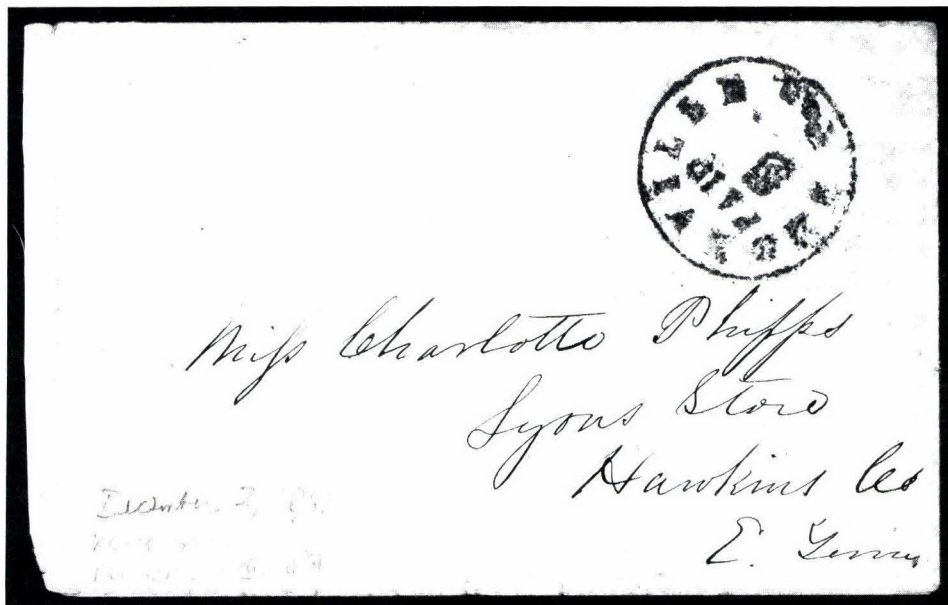 PAID
Miss Charlotte Phipps
Lyons Store
Hawkins Co
E. Tenn
December 2,